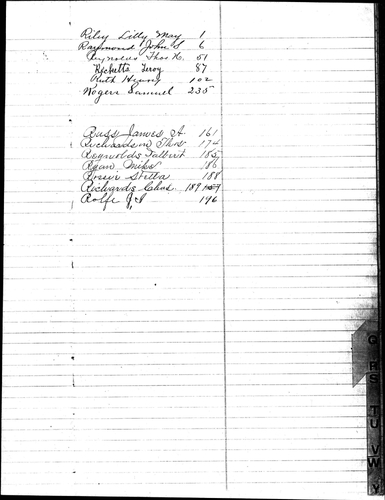 Riley Lilly May 1
Raymond John S 6
Reynolds Thos H. 51
Ricketts Leroy 87
Ruth Henry 102
Rogers Samuel 235
Russ James A. 161
Richardson Thos 174
Reynolds Talbert 185
Ryan Mike 186
Rosier Stella 188
Richards Chas. 189 159
Rolfe J A 196
G
RS
TU
VW
Y